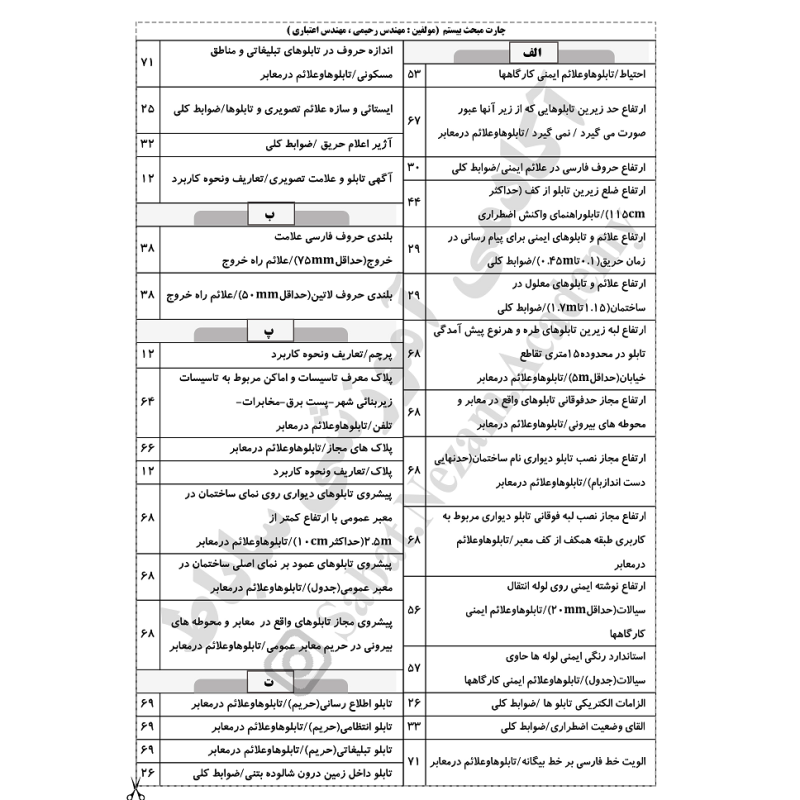 چارت مبحث بیستم (مولفین : مهندس رحیمی ، مهندس اعتباری )
الف
احتیاط/تابلوهاوعلائم ایمنی کارگاهها
۵۳
ارتفاع حد زیرین تابلوهایی که از زیر آنها عبور
صورت می گیرد / نمی گیرد /تابلوهاوعلائم درمعابر
۶۷
ارتفاع حروف فارسی در علائم ایمنی/ضوابط کلی
۳۰
ارتفاع ضلع زیرین تابلو از کف (حداکثر
۱۱۵cm)/تابلوراهنمای واکنش اضطراری
۴۴
ارتفاع علائم و تابلوهای ایمنی برای پیام رسانی در
زمان حریق(۰.۱تا۰.۴۵m)/ضوابط کلی
۲۹
ارتفاع علائم و تابلوهای معلول در
ساختمان(۱.۱۵تا۱.۷m)/ضوابط کلی
۲۹
ارتفاع لبه زیرین تابلوهای طره و هرنوع پیش آمدگی
تابلو در محدوده۱۵متری تقاطع
خیابان(حداقل۵m)/تابلوهاوعلائم درمعابر
۶۸
ارتفاع مجاز حدفوقانی تابلوهای واقع در معابر و
محوطه های بیرونی/تابلوهاوعلائم درمعابر
۶۸
ارتفاع مجاز نصب تابلو دیواری نام ساختمان(حدنهایی
دست اندازبام)/تابلوهاوعلائم درمعابر
۶۸
ارتفاع مجاز نصب لبه فوقانی تابلو دیواری مربوط به
کاربری طبقه همکف از کف معبر/تابلوهاوعلائم
درمعابر
۶۸
ارتفاع نوشته ایمنی روی لوله انتقال
سیالات(حداقل۲۰mm)/تابلوهاوعلائم ایمنی
کارگاهها
۵۶
استاندارد رنگی ایمنی لوله ها حاوی
سیالات(جدول)/تابلوهاوعلائم ایمنی کارگاهها
۵۷
الزامات الکتریکی تابلو ها /ضوابط کلی
۲۶
القای وضعیت اضطراری/ضوابط کلی
۳۳
الویت خط فارسی بر خط بیگانه/تابلوهاوعلائم درمعابر
۷۱
اندازه حروف در تابلوهای تبلیغاتی و مناطق
مسکونی/تابلوهاوعلائم درمعابر
۷۱
ایستائی و سازه علائم تصویری و تابلوها/ضوابط کلی
۲۵
آژیر اعلام حریق /ضوابط کلی
۳۲
آگهی تابلو و علامت تصویری/تعاریف ونحوه کاربرد
۱۲
ب
بلندی حروف فارسی علامت
خروج(حداقل۷۵mm)/علائم راه خروج
۳۸
بلندی حروف لاتین(حداقل۵۰mm)/علائم راه خروج
۳۸
پ
پرچم/تعاریف ونحوه کاربرد
۱۲
پلاک معرف تاسیسات و اماکن مربوط به تاسیسات
زیربنائی شهر-پست برق-مخابرات-
تلفن/تابلوهاوعلائم درمعابر
۶۴
پلاک های مجاز/تابلوهاوعلائم درمعابر
۶۶
پلاک/تعاریف ونحوه کاربرد
۱۲
پیشروی تابلوهای دیواری روی نمای ساختمان در
معبر عمومی با ارتفاع کمتر از
۲.۵m(حداکثر۱۰cm)/تابلوهاوعلائم درمعابر
۶۸
پیشروی تابلوهای عمود بر نمای اصلی ساختمان در
معبر عمومی(جدول)/تابلوهاوعلائم درمعابر
۶۸
پیشروی مجاز تابلوهای واقع در معابر و محوطه های
بیرونی در حریم معابر عمومی/تابلوهاوعلائم درمعابر
۶۸
ت
تابلو اطلاع رسانی(حریم)/تابلوهاوعلائم درمعابر
۶۹
تابلو انتظامی(حریم)/تابلوهاوعلائم درمعابر
۶۹
تابلو تبلیغاتی(حریم)/تابلوهاوعلائم درمعابر
۶۹
تابلو داخل زمین درون شالوده بتنی/ضوابط کلی
۲۶
آکادمی آموزشی ساباط
Sabat.Nezam.Academy